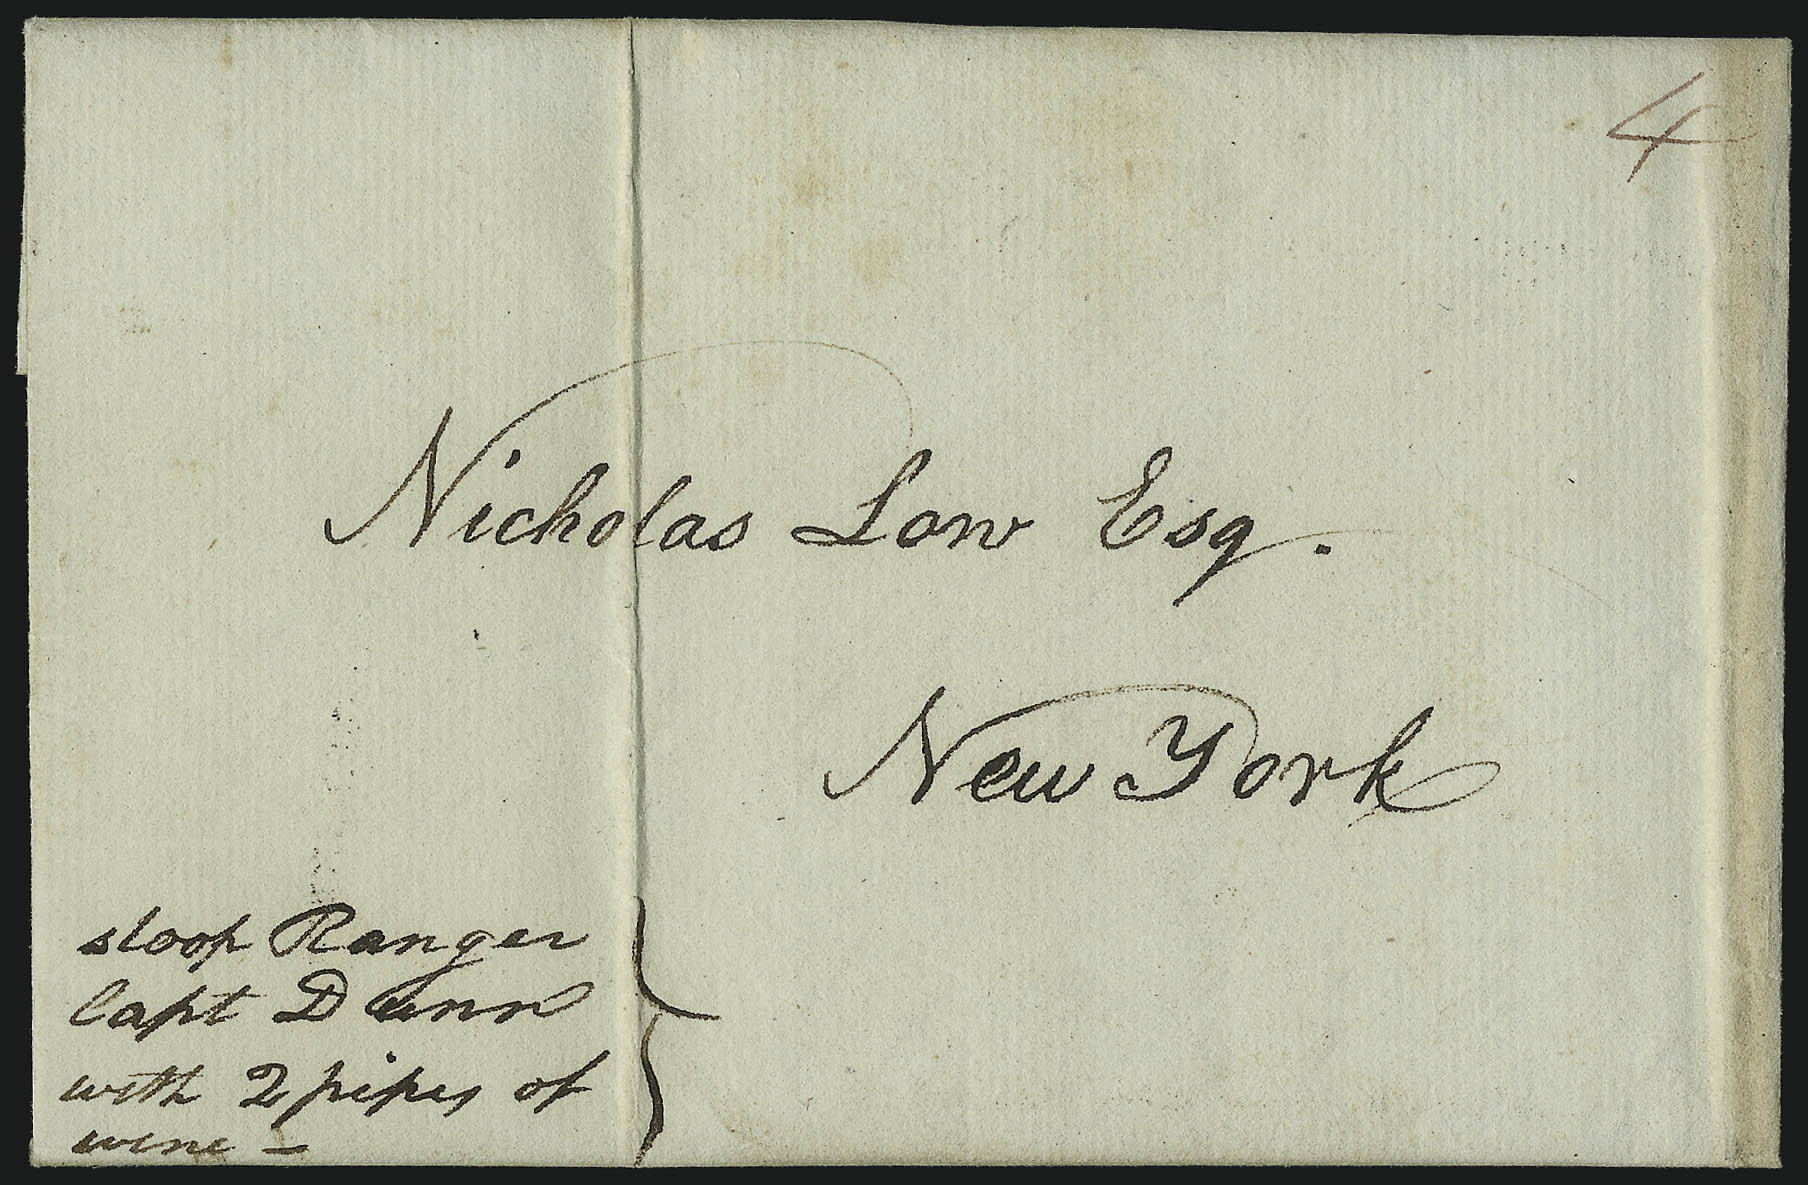 4
Nicholas Low Esq.
New York
sloop Ranger
Capt Dunn
with 2 pipes of
wine —